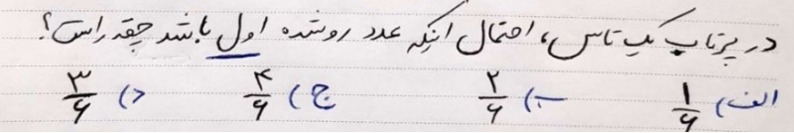 در پرتاب یک تاس، احتمال اینکه عدد رو شده اول باشد چقدر است؟
الف) ۱/۶ ب) ۲/۶ ج) ۴/۶ د) ۳/۶